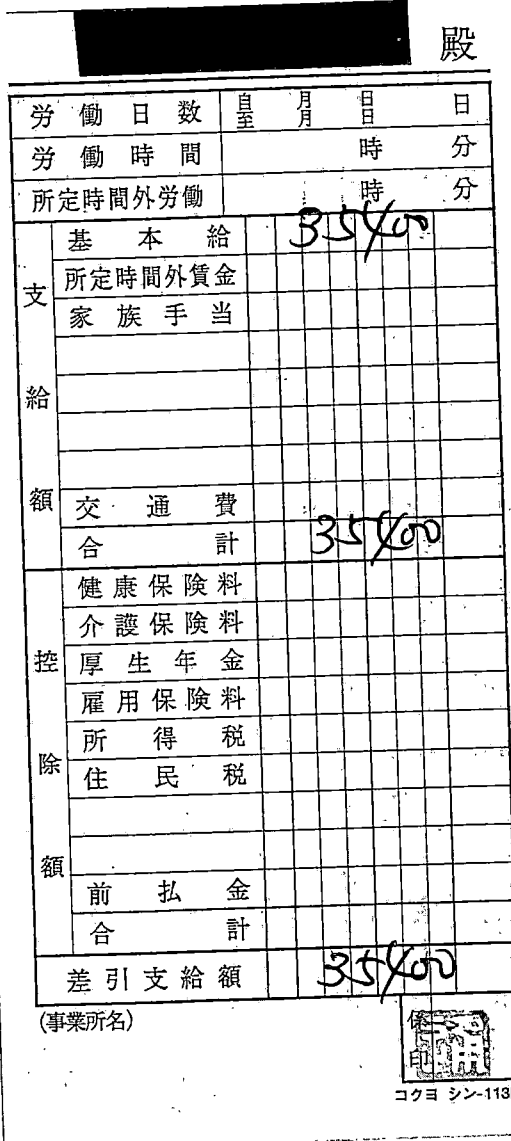 殿
労働日数 自 月 日 至 月 日 日
労働時間 時 分
所定時間外労働 時 分
支給額
基本給 35400
所定時間外賃金
家族手当
交通費
合計 35400
控除額
健康保険料
介護保険料
厚生年金
雇用保険料
所得税
住民税
前払金
合計
差引支給額 35400
(事業所名)
係印
コクヨ シン-113